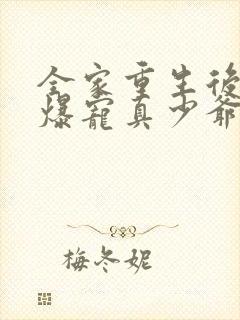 全家重生後
爆寵真少爺
梅冬妮